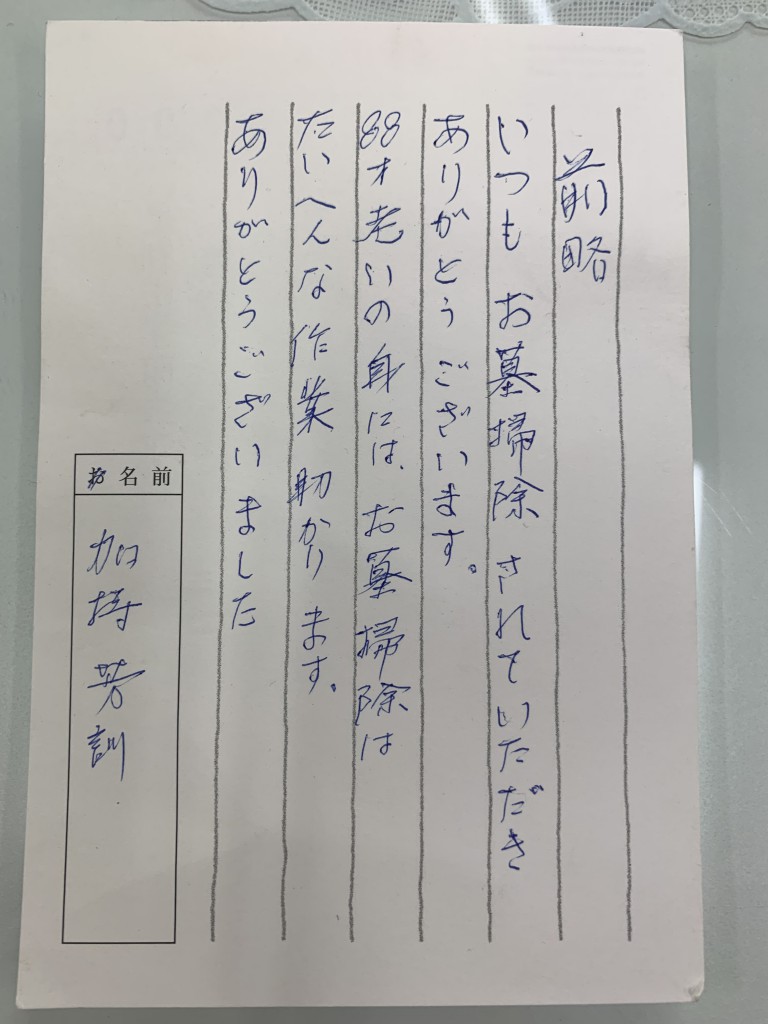 前略
いつもお墓掃除されていただき
ありがとうございます。
88才老いの身には、お墓掃除は
たいへんな作業助かります。
ありがとうございました
お名前
加持芳訓